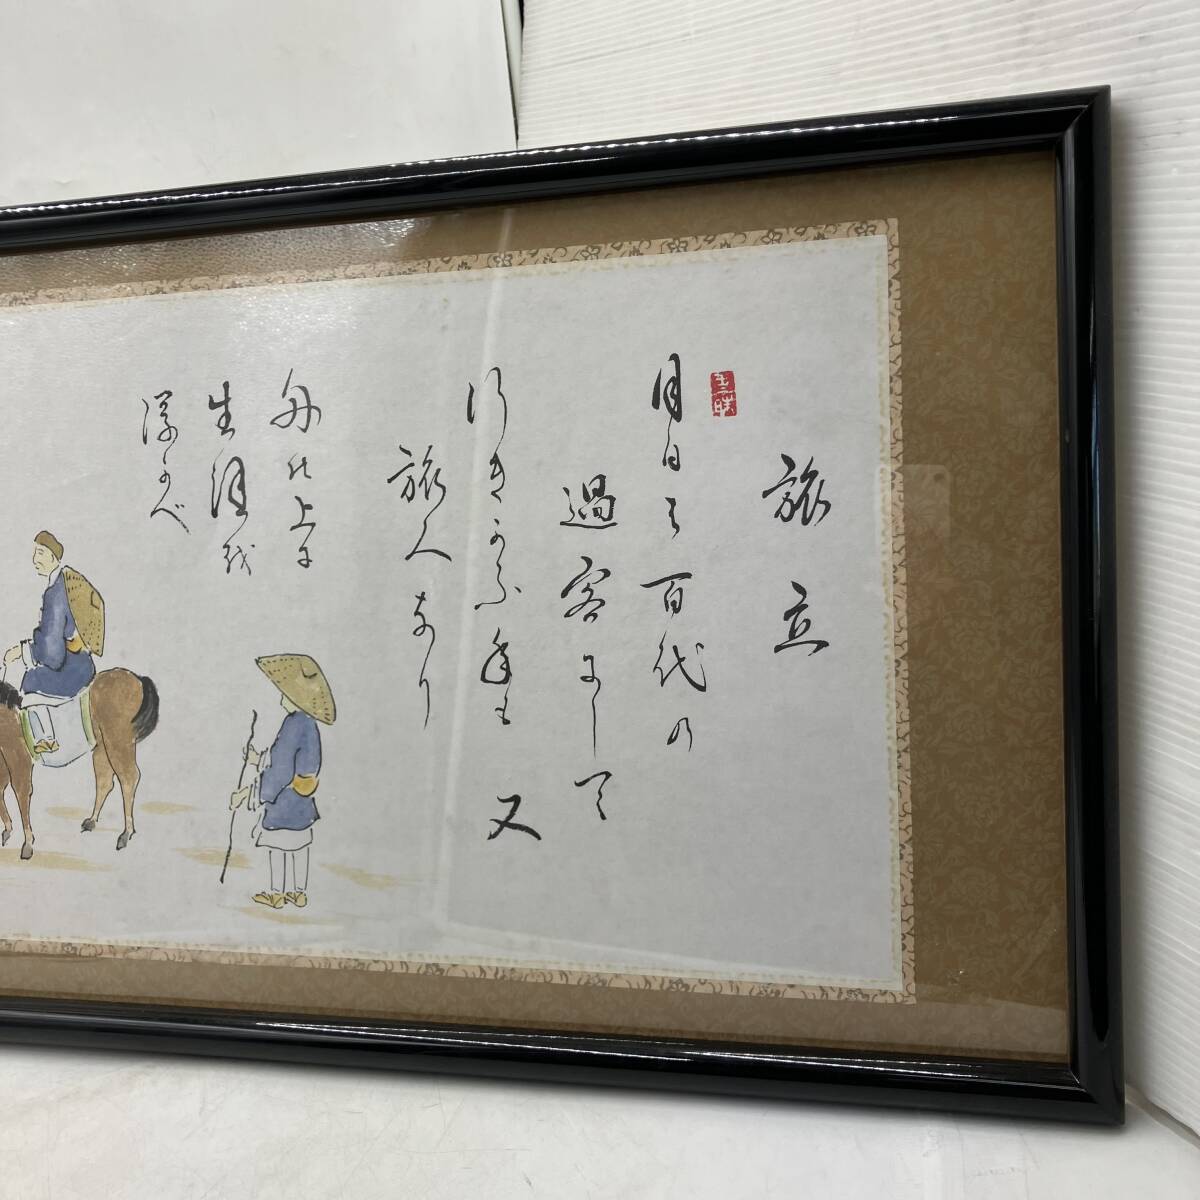 旅立
月日は百代の
過客にして
行きかふ年も又
旅人なり
舟の上に
生涯を
浮かべ